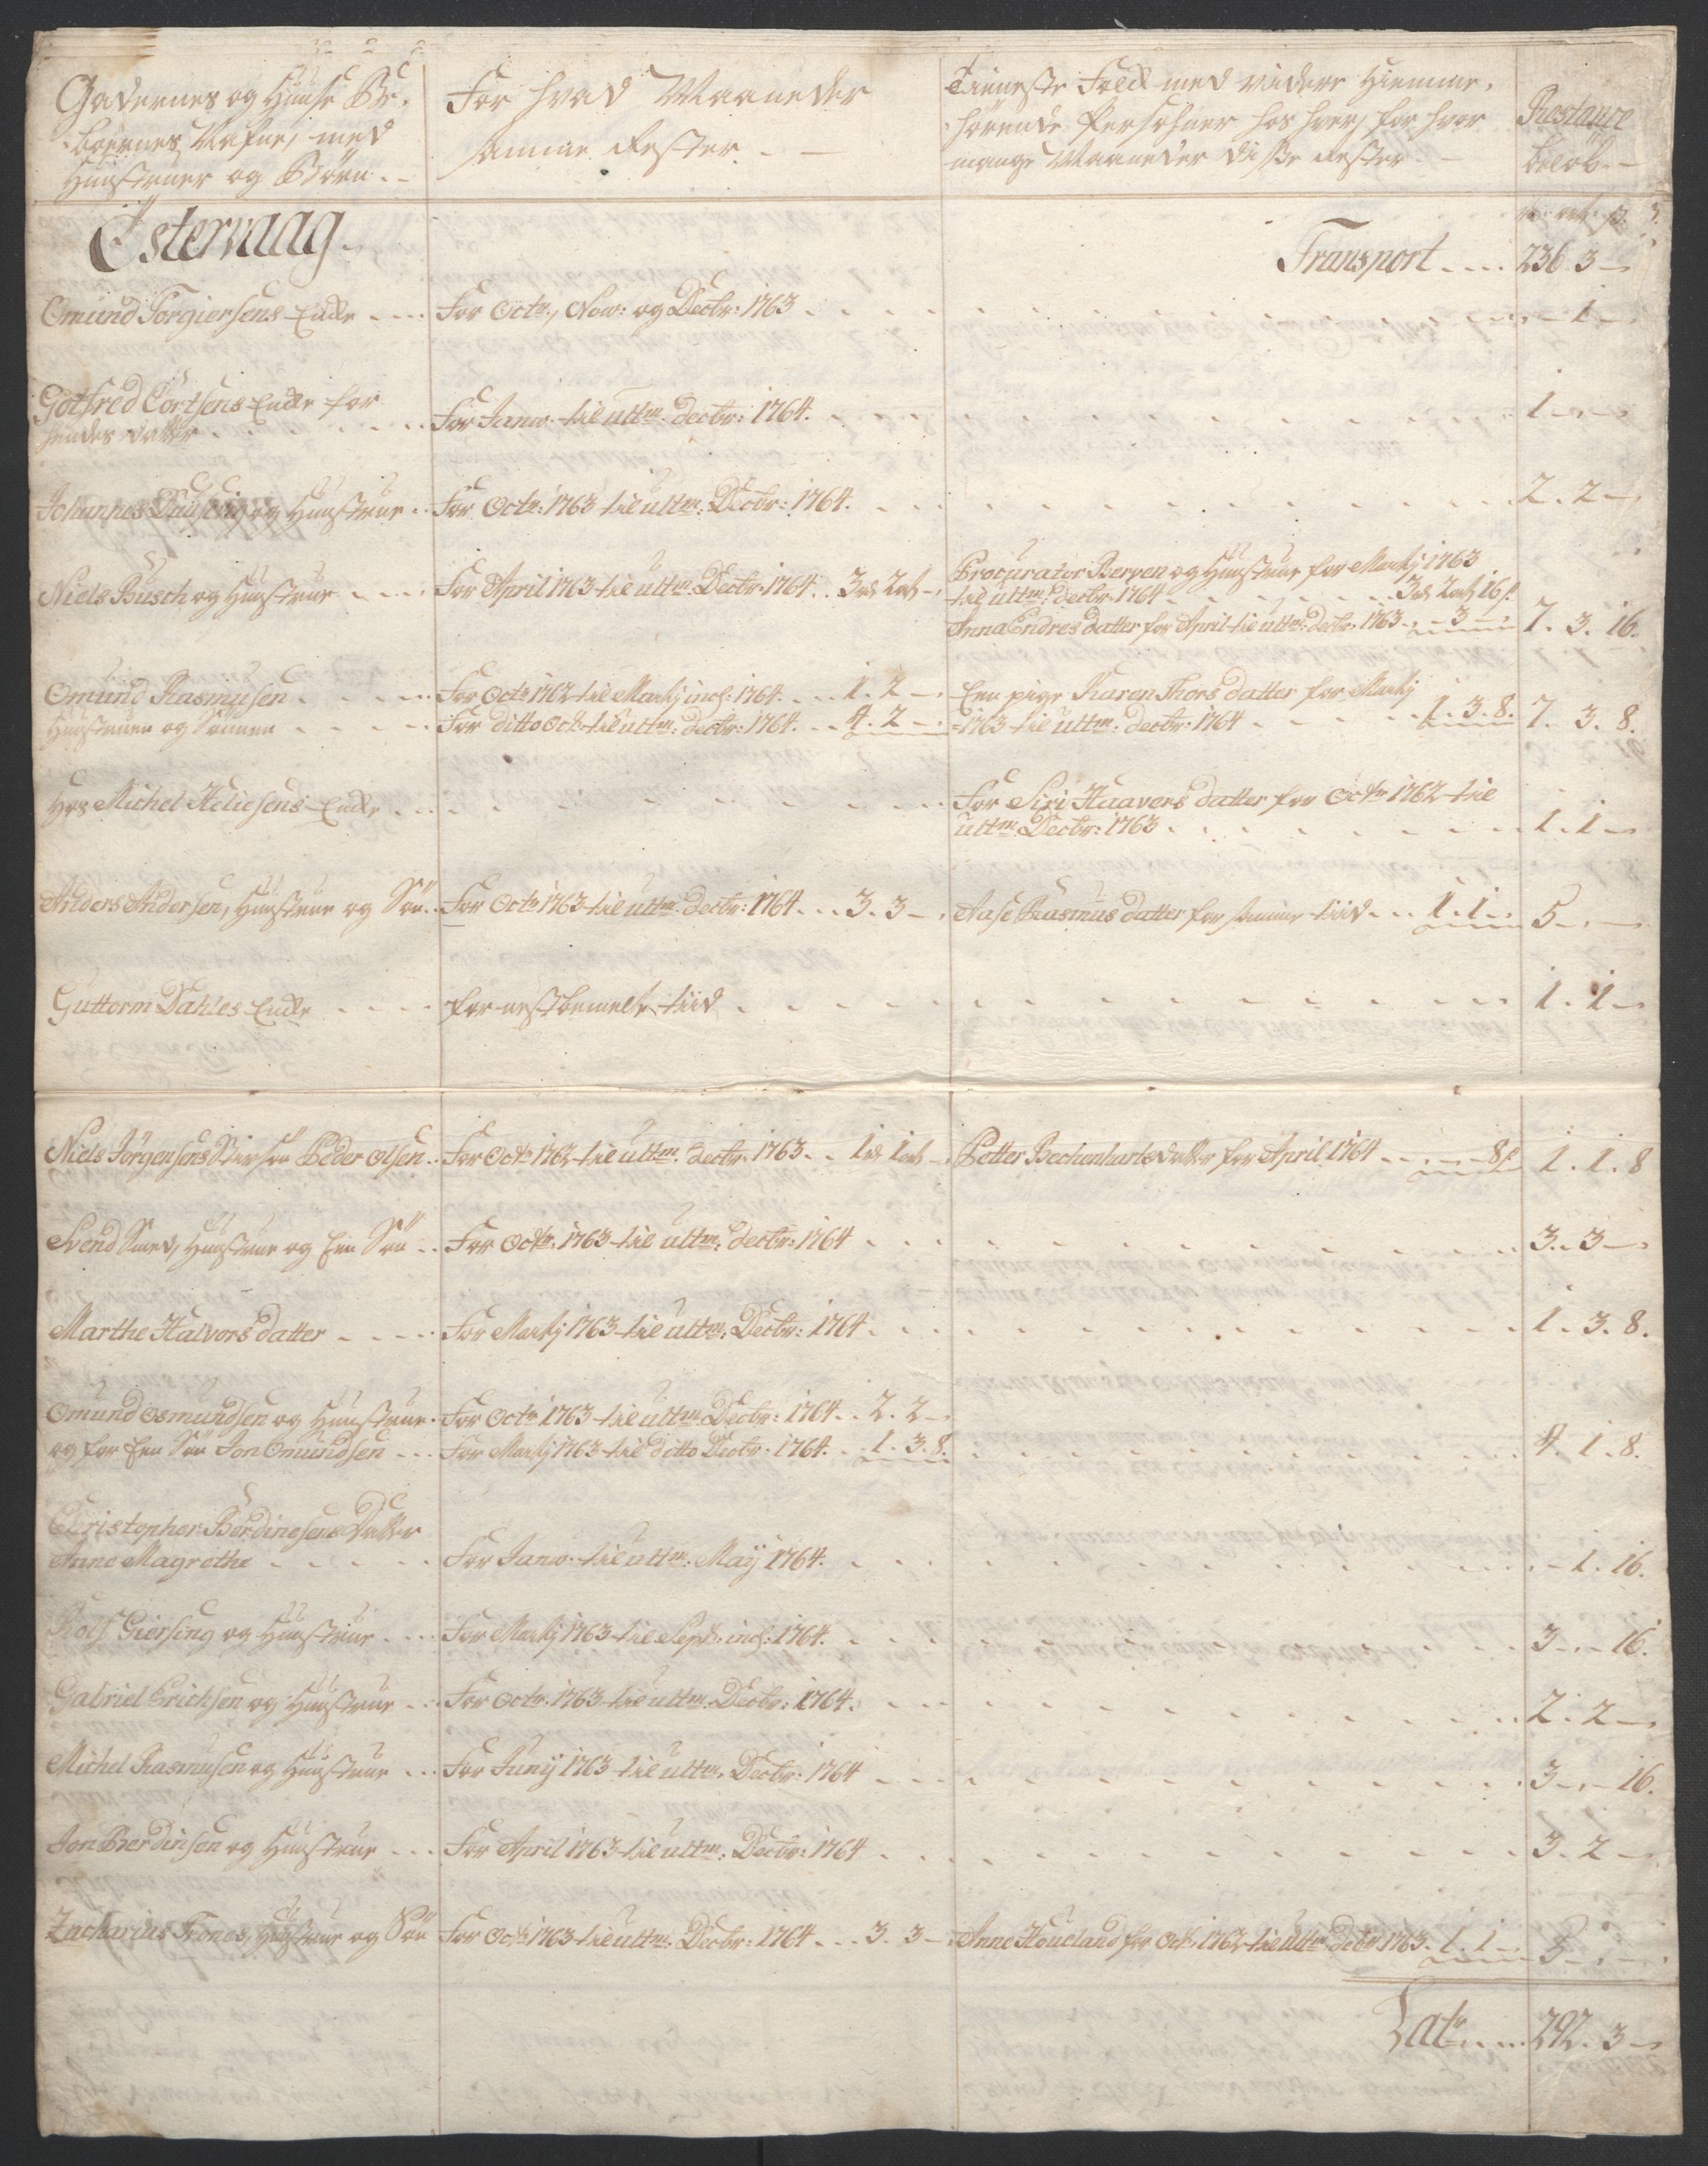 Gadernes og Huuse Be-
boernes Nafne, med
Hustruer og Börn.
For hvad Maaneder
samme Rester.
Tieneste Folck med videre Hiemme-
hörende Persohner hos hver, for hvor
mange Maaneder disse Rester
Restance
belöb
Östervaag
Transport 236. 3 –
Omund Torgiersens Encke For Octr, Novr: og Decbr: 1763 – 1 –
Gotfred Cortsens Encke for
hendes datter For Janr. til ultm. decbr: 1764. 1 – –
Johannes og Hustrue For Octr: 1763 til ultm: Decbr: 1764. 2. 2 –
Niels Busch og Hustrue For April 1763 til ultm: Decbr: 1764. 3rd 2ort –
Procurator Bergen og Hustrue for Martj 1763
til ultm: decbr: 1764 3rd 2ort 16s.
Anna Endresdatter for April til ultm: decbr: 1763 – 3 – 7. 3. 16.
Omund Rasmusen For Octr 1762 til Martj incl: 1764. 1. 2 –
Hustruen og Sönnen For ditto Octr til ultm: decbr: 1764. 4. 2 –
Een pige Karen Thorsdatter for Martj
1763 til ultm: decbr: 1764 1. 3. 8. 7. 3. 8.
Hos Michel Heliesens Encke
For Siri Haavorsdatter for Octr 1762 til
ultm. Decbr: 1763 1. 1 –
Anders Andersen, Hustrue og Sön For Octr 1763 til ultm: decbr: 1764 3. 3 – Aase Rasmusdatter for samme tiid 1. 1 – 5 – –
Guttorm Dahles Encke for nestbemelte tiid 1. 1 –
Niels Jörgensens Stivsön Peder Olsen For Octr 1762 til ultm. decbr. 1763 1rd 1ort – Petter Bechenharts datter for April 1764 8s. 1. 1. 8
Svend Smed, Hustrue og Een Sön For Octr: 1763 til ultm: decbr: 1764 3. 3 –
Marthe Halvorsdatter For Martj 1763 til ultm: Decbr: 1764 1. 3. 8.
Omund Osmundsen og Hustrue For Octr 1763 til ultm: Decbr: 1764 2. 2 –
og for Een Sön Jon Omundsen For Martj 1763 til ditto Decbr: 1764. 1. 3. 8. 4. 1. 8.
Christopher Berdinesens Datter
Anne Magrethe For Janr. til ultm: Maij 1764. – 1. 16.
Rolf Giersing og Hustrue For Martj 1763 til Septr. incl: 1764. 3 – 16.
Gabriel Erichsen og Hustrue For Octr. 1763 til ultm: Decbr: 1764. 2. 2 –
Michel Rasmusen og Hustrue For Junij 1763 til ultm: Decbr: 1764 3 – 16.
Jon Berdinsen og Hustrue For April 1763 til ultm: Decbr: 1764 3. 2 –
Zacharias Trones, Hustrue og Sön For Octr 1763 til ultm: Decbr: 1764 3. 3 – Anne Houeland for Octr 1762 til ultm decbr 1763. 1. 1 – 5 – –
Latr 292. 3 –